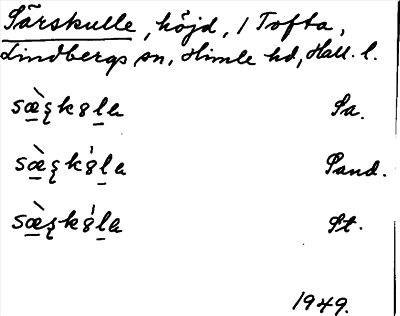 Särskulle, höjd, i Tofta,
Lindbergs sn, Himle hd, Hall. l.
sæ̠̀ʂkɞl̠a Sa.
sæ̠̀ʂkɞ́l̠a Sand.
sæ̠̀ʂkɞ́l̠a St.
1949.